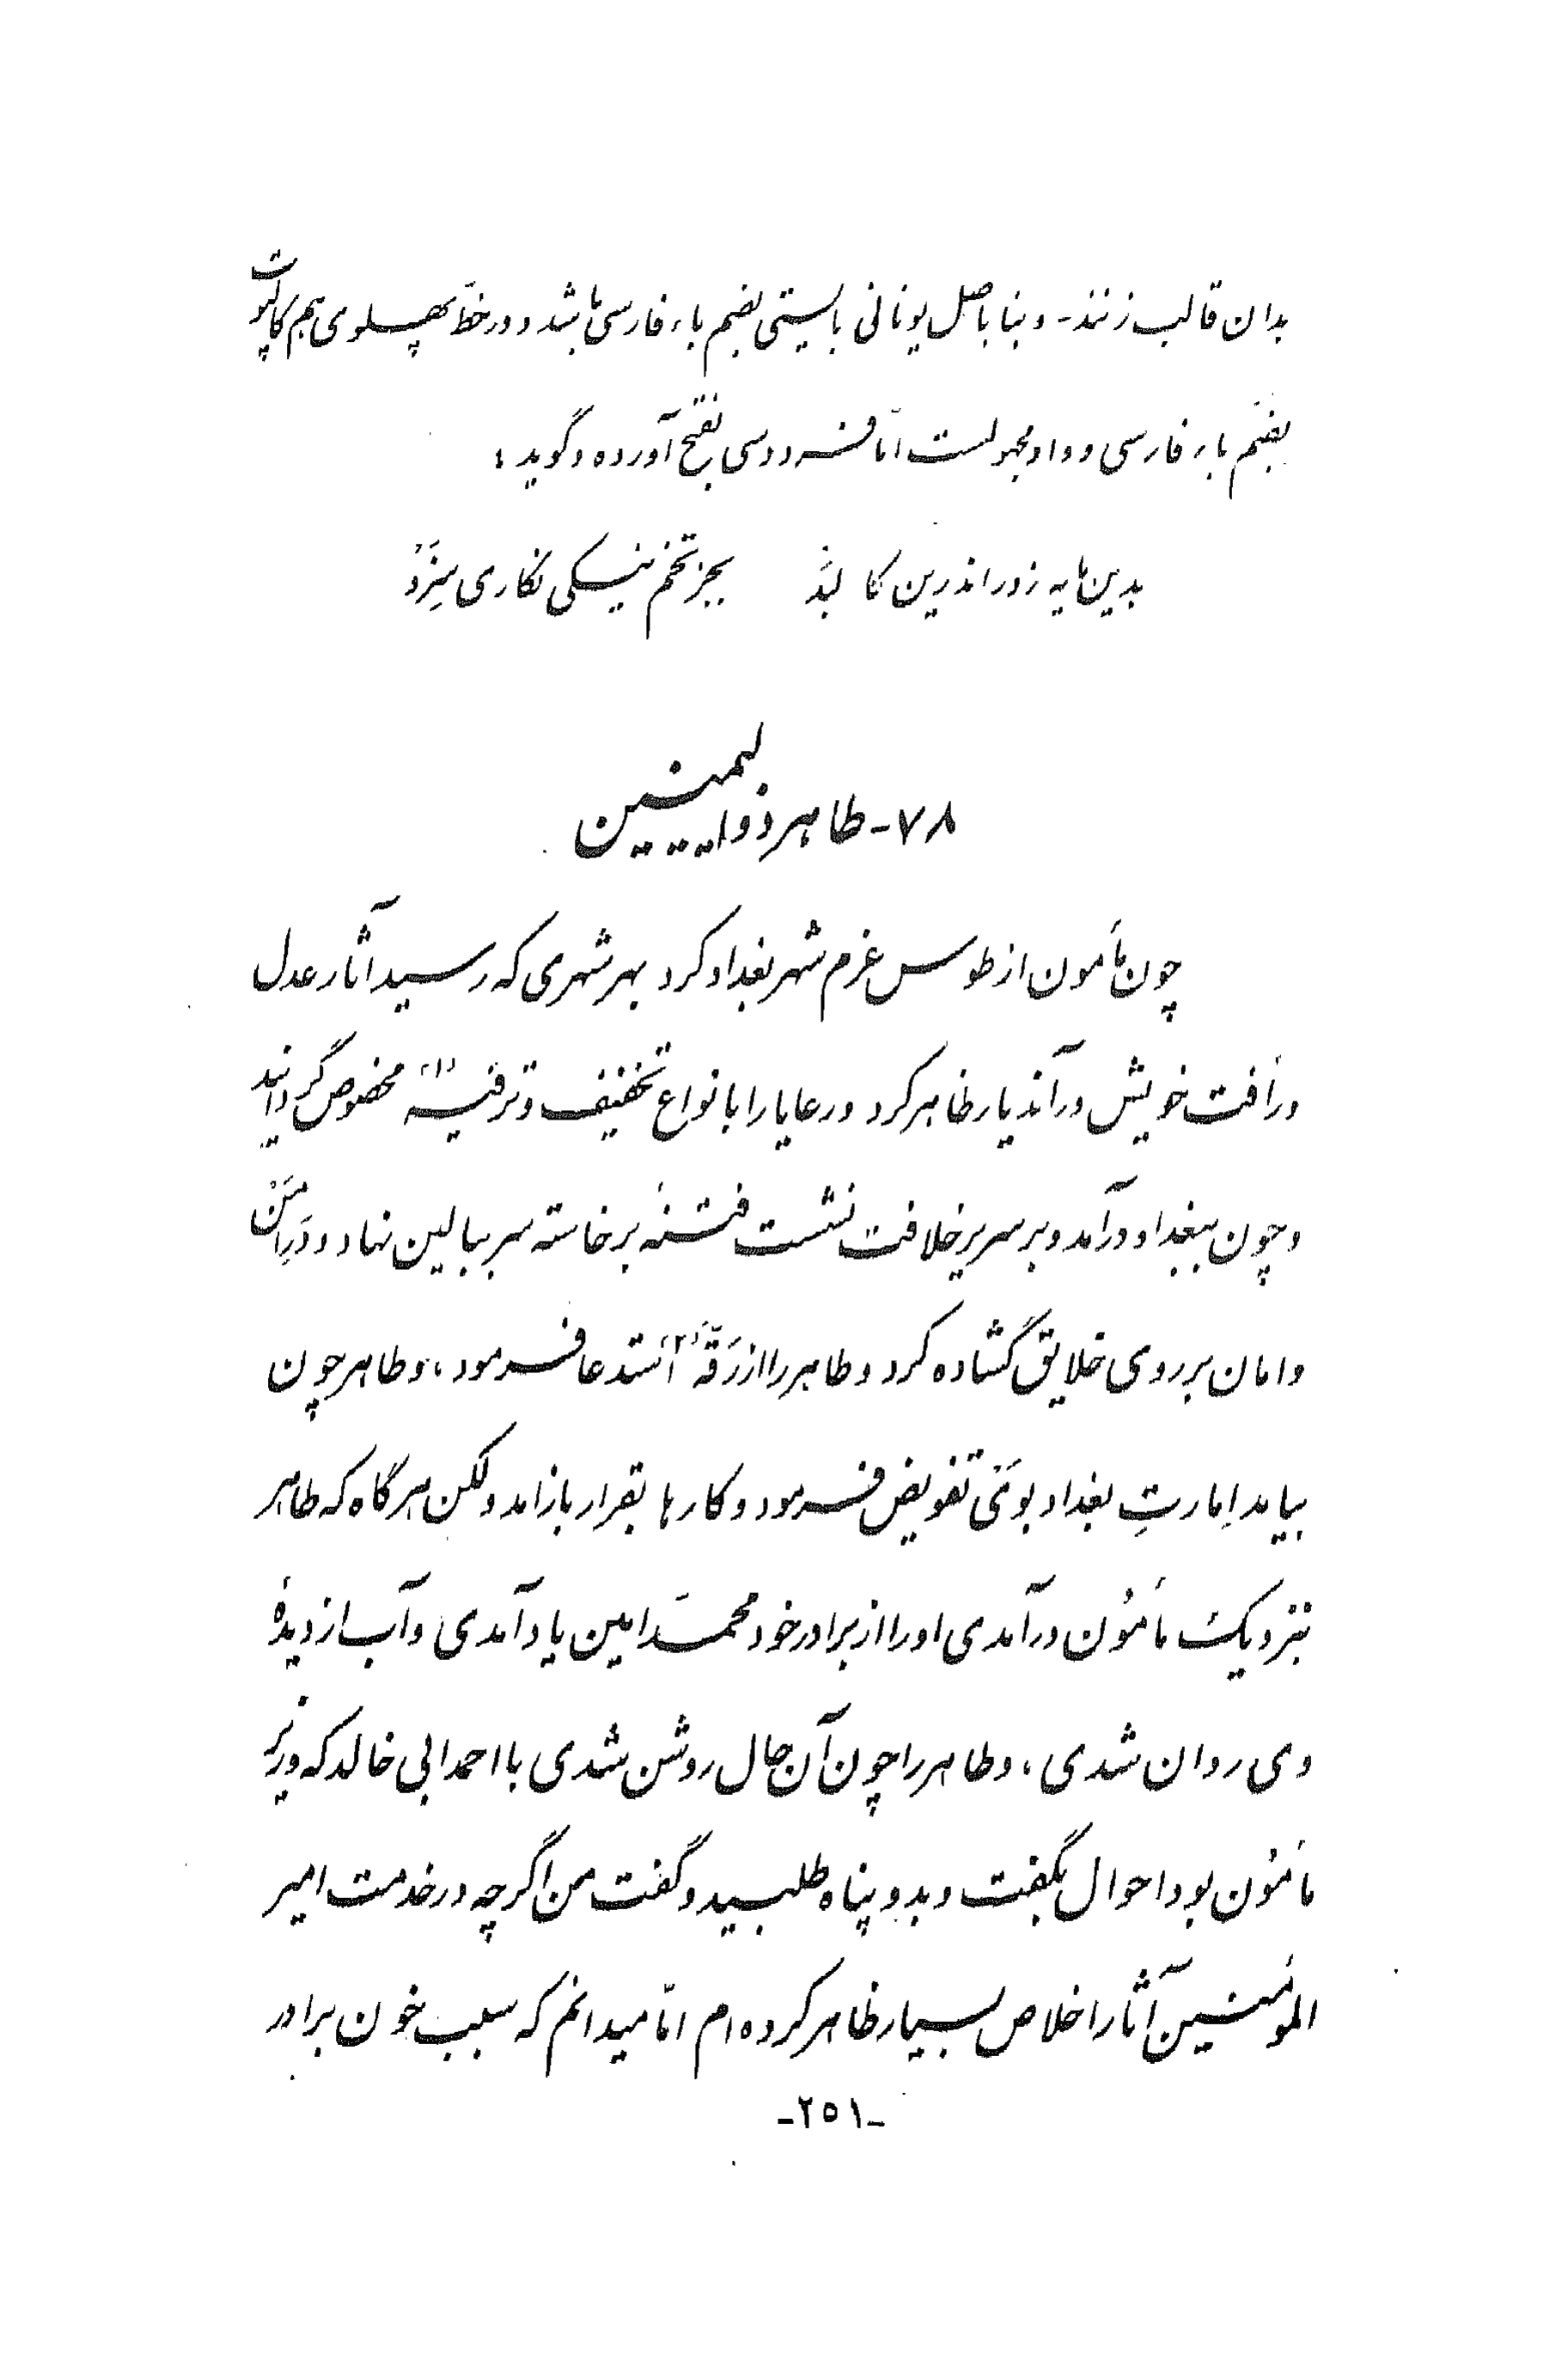 بدان قالب زنند- و بنا باصل یونانی بایستی بضم باء فارسی باشد و در خطّ پهلوی هم کالپوت
بضّم باء فارسی و واو مجهولست امّا فردوسی بفتح آورده و گوید:
بدین مایه زور اندرین کالبَد بجز تخم نیکی نکاری سِزَدْ
۷۸- طاهر ذوالیمینین
چون مأمون از طوس عزم شهر بغداد کرد بهر شهری که رسید آثار عدل
و رأفت خویش در آندیار ظاهر کرد و رعایا را بانواع تخفیف و ترفیه «۱» مخصوص گردانید
و چون ببغداد درآمد و بر سریر خلافت نشست فتنهٔ برخاسته سر ببالین نهاد و دَرِ اَمْن
و امان بر روی خلایق گشاده کرد و طاهر را از رَقّه «۲» استدعا فرمود، و طاهر چون
بیامد اِمارتِ بغداد بوَیْ تفویض فرمود و کارها بقرار بازامد ولکن هر گاه که طاهر
بنزدیک مأمُون درآمدی او را از برادر خود محمّد امین یاد آمدی و آب از دیدهٔ
وی روان شدی، و طاهر را چون آن حال روشن شدی با احمد ابی خالد که وزیر
مأمُون بود احوال بگفت و بدو پناه طلبید و گفت من اگرچه در خدمت امیر
المؤمنین آثار اخلاص بسیار ظاهر کرده‌ام امّا میدانم که بسبب خون برادر
-۲۵۱-